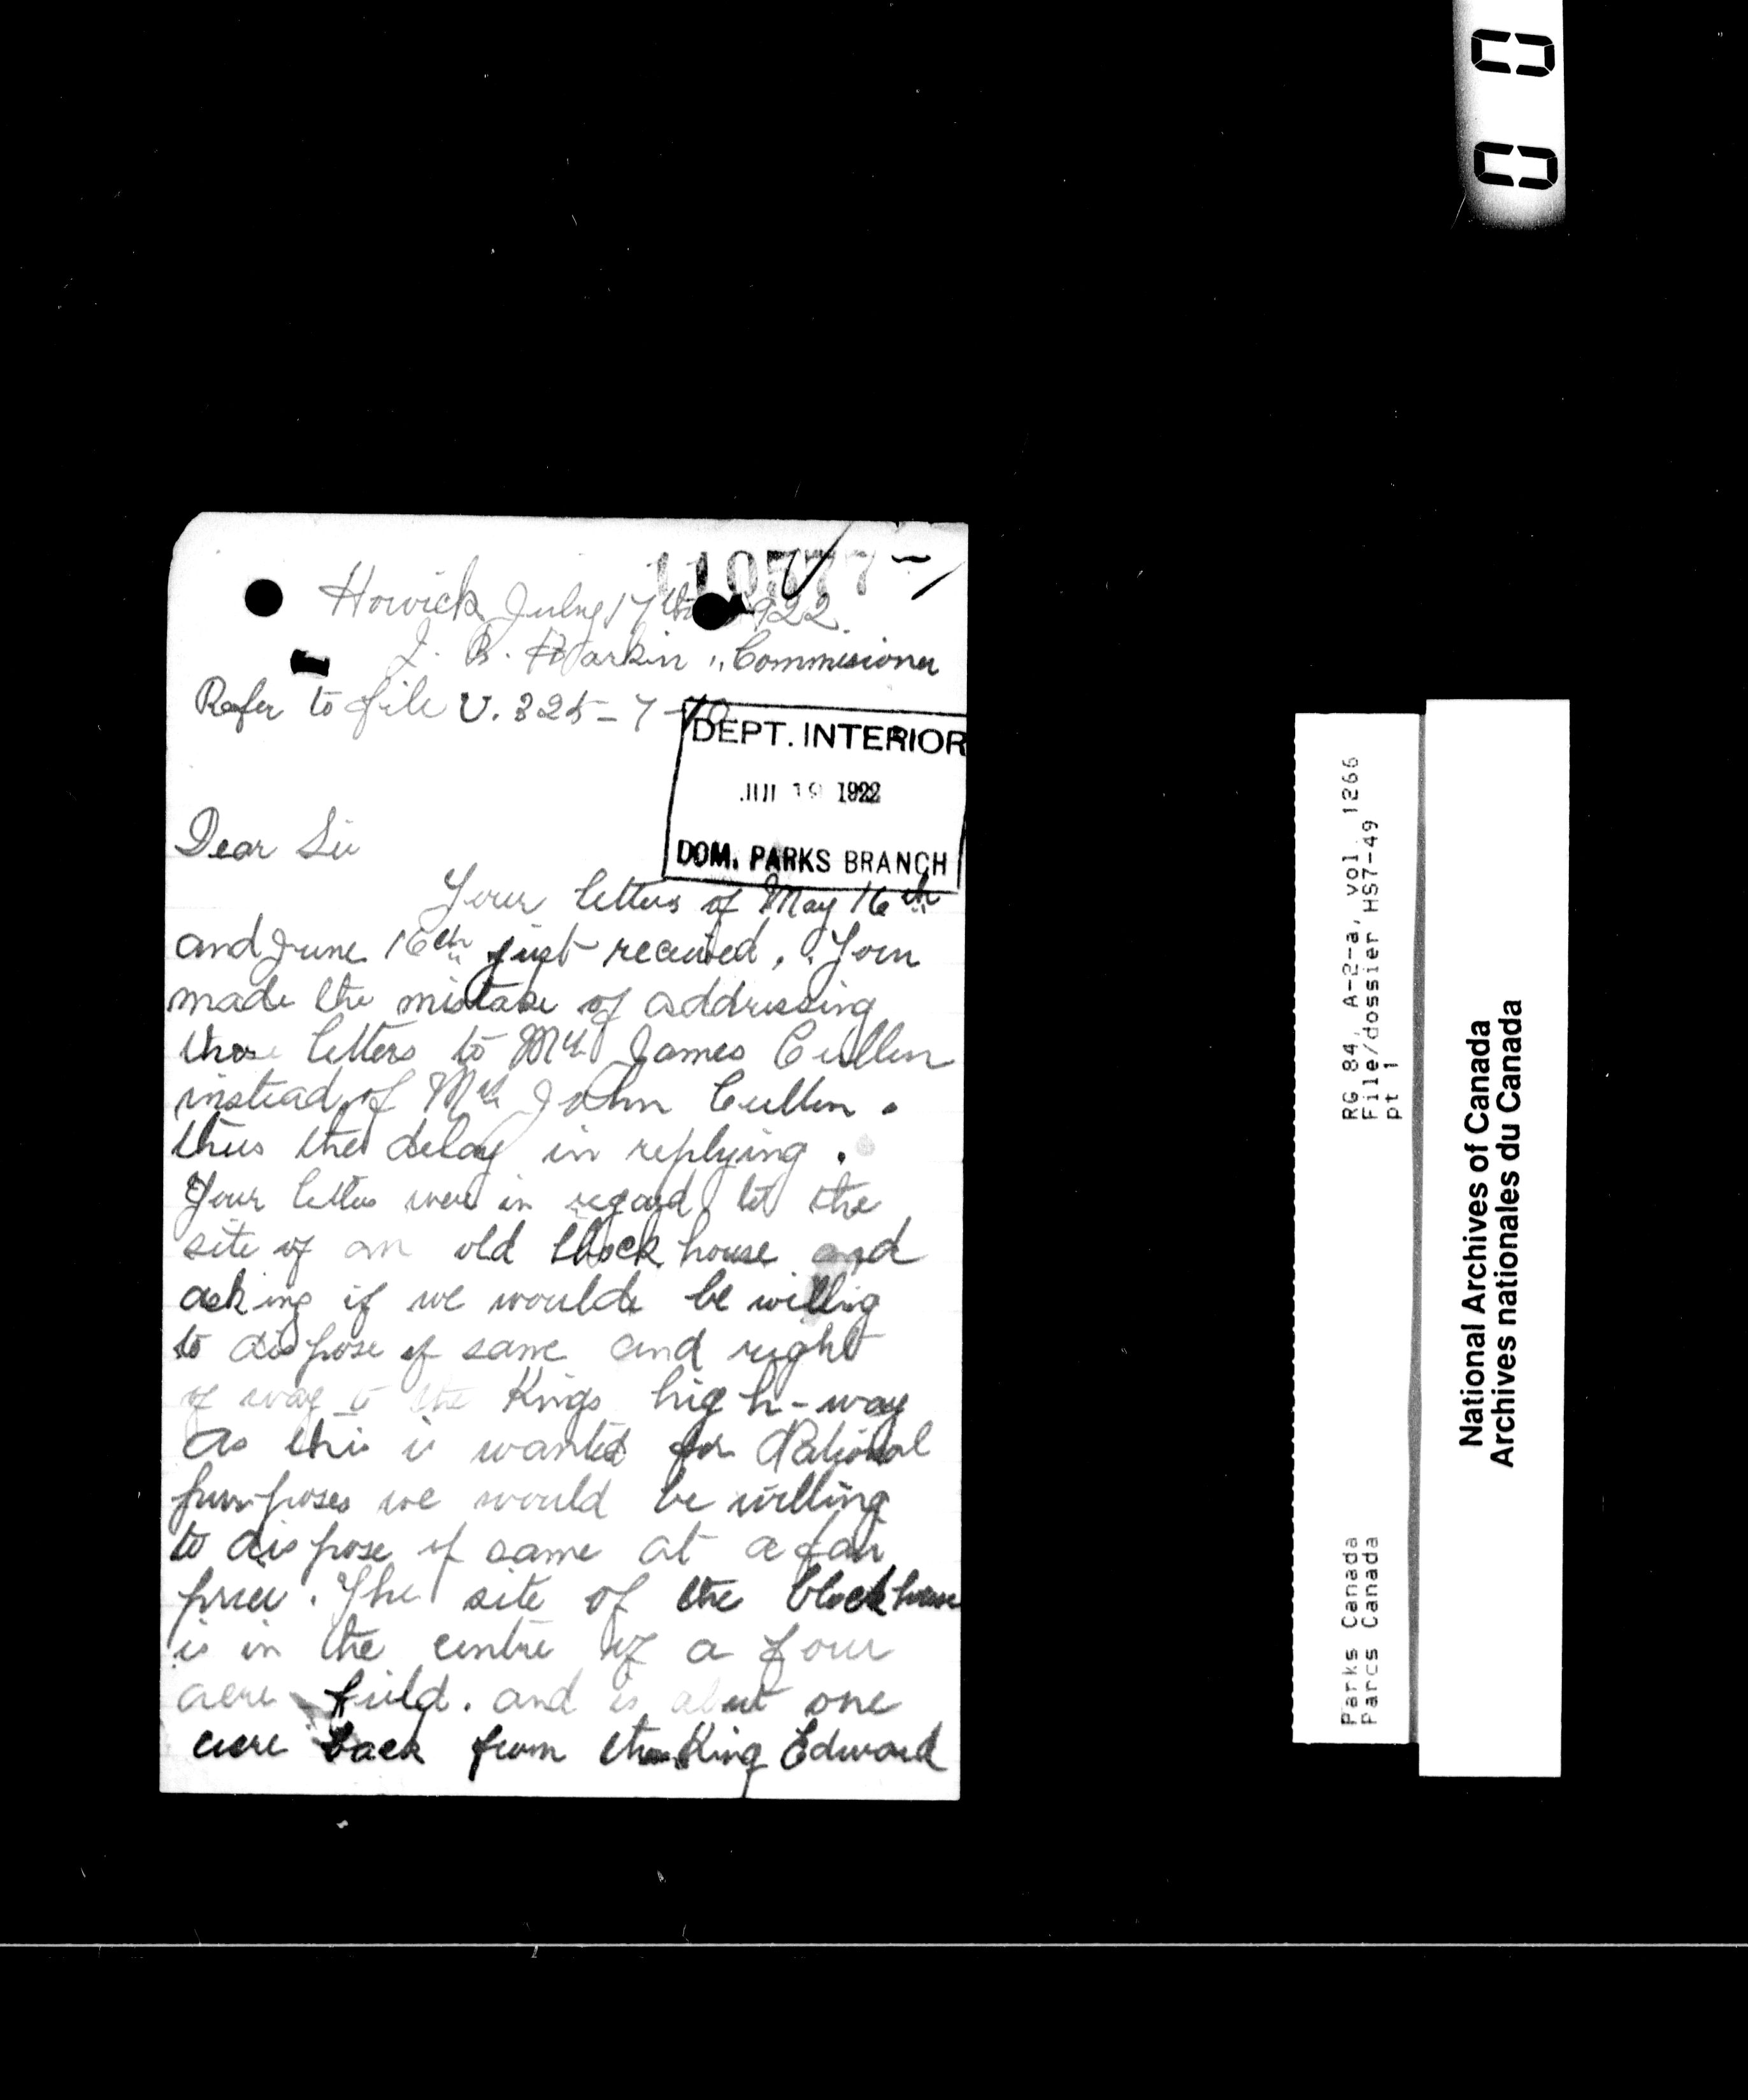 00
110577
Howick July 17th 1922.
J. B. Harkin, Commisioner
Refer to file U. 325-7-10
DEPT. INTERIOR
1922
DOM. PARKS BRANCH
Dear Sir
Your letters of May 16th
and June 16th just received. You
made the mistake of addressing
those letters to Mrs James Cullen
instead of Mrs John Cullen.
thus the delay in replying.
Your letters were in regard to the
site of an old block house and
asking if we would be willing
to dispose of same and right
of way to the Kings high-way
As this is wanted for National
purposes we would be willing
to dispose of same at a fair
price. The site of the blockhouse
is in the centre of a four
acre field. and is about one
acre back from the King Edward
RG 84, A-2-a, vol. 1266
File/dossier HS7-49
pt 1
Parks Canada
Parcs Canada
National Archives of Canada
Archives nationales du Canada